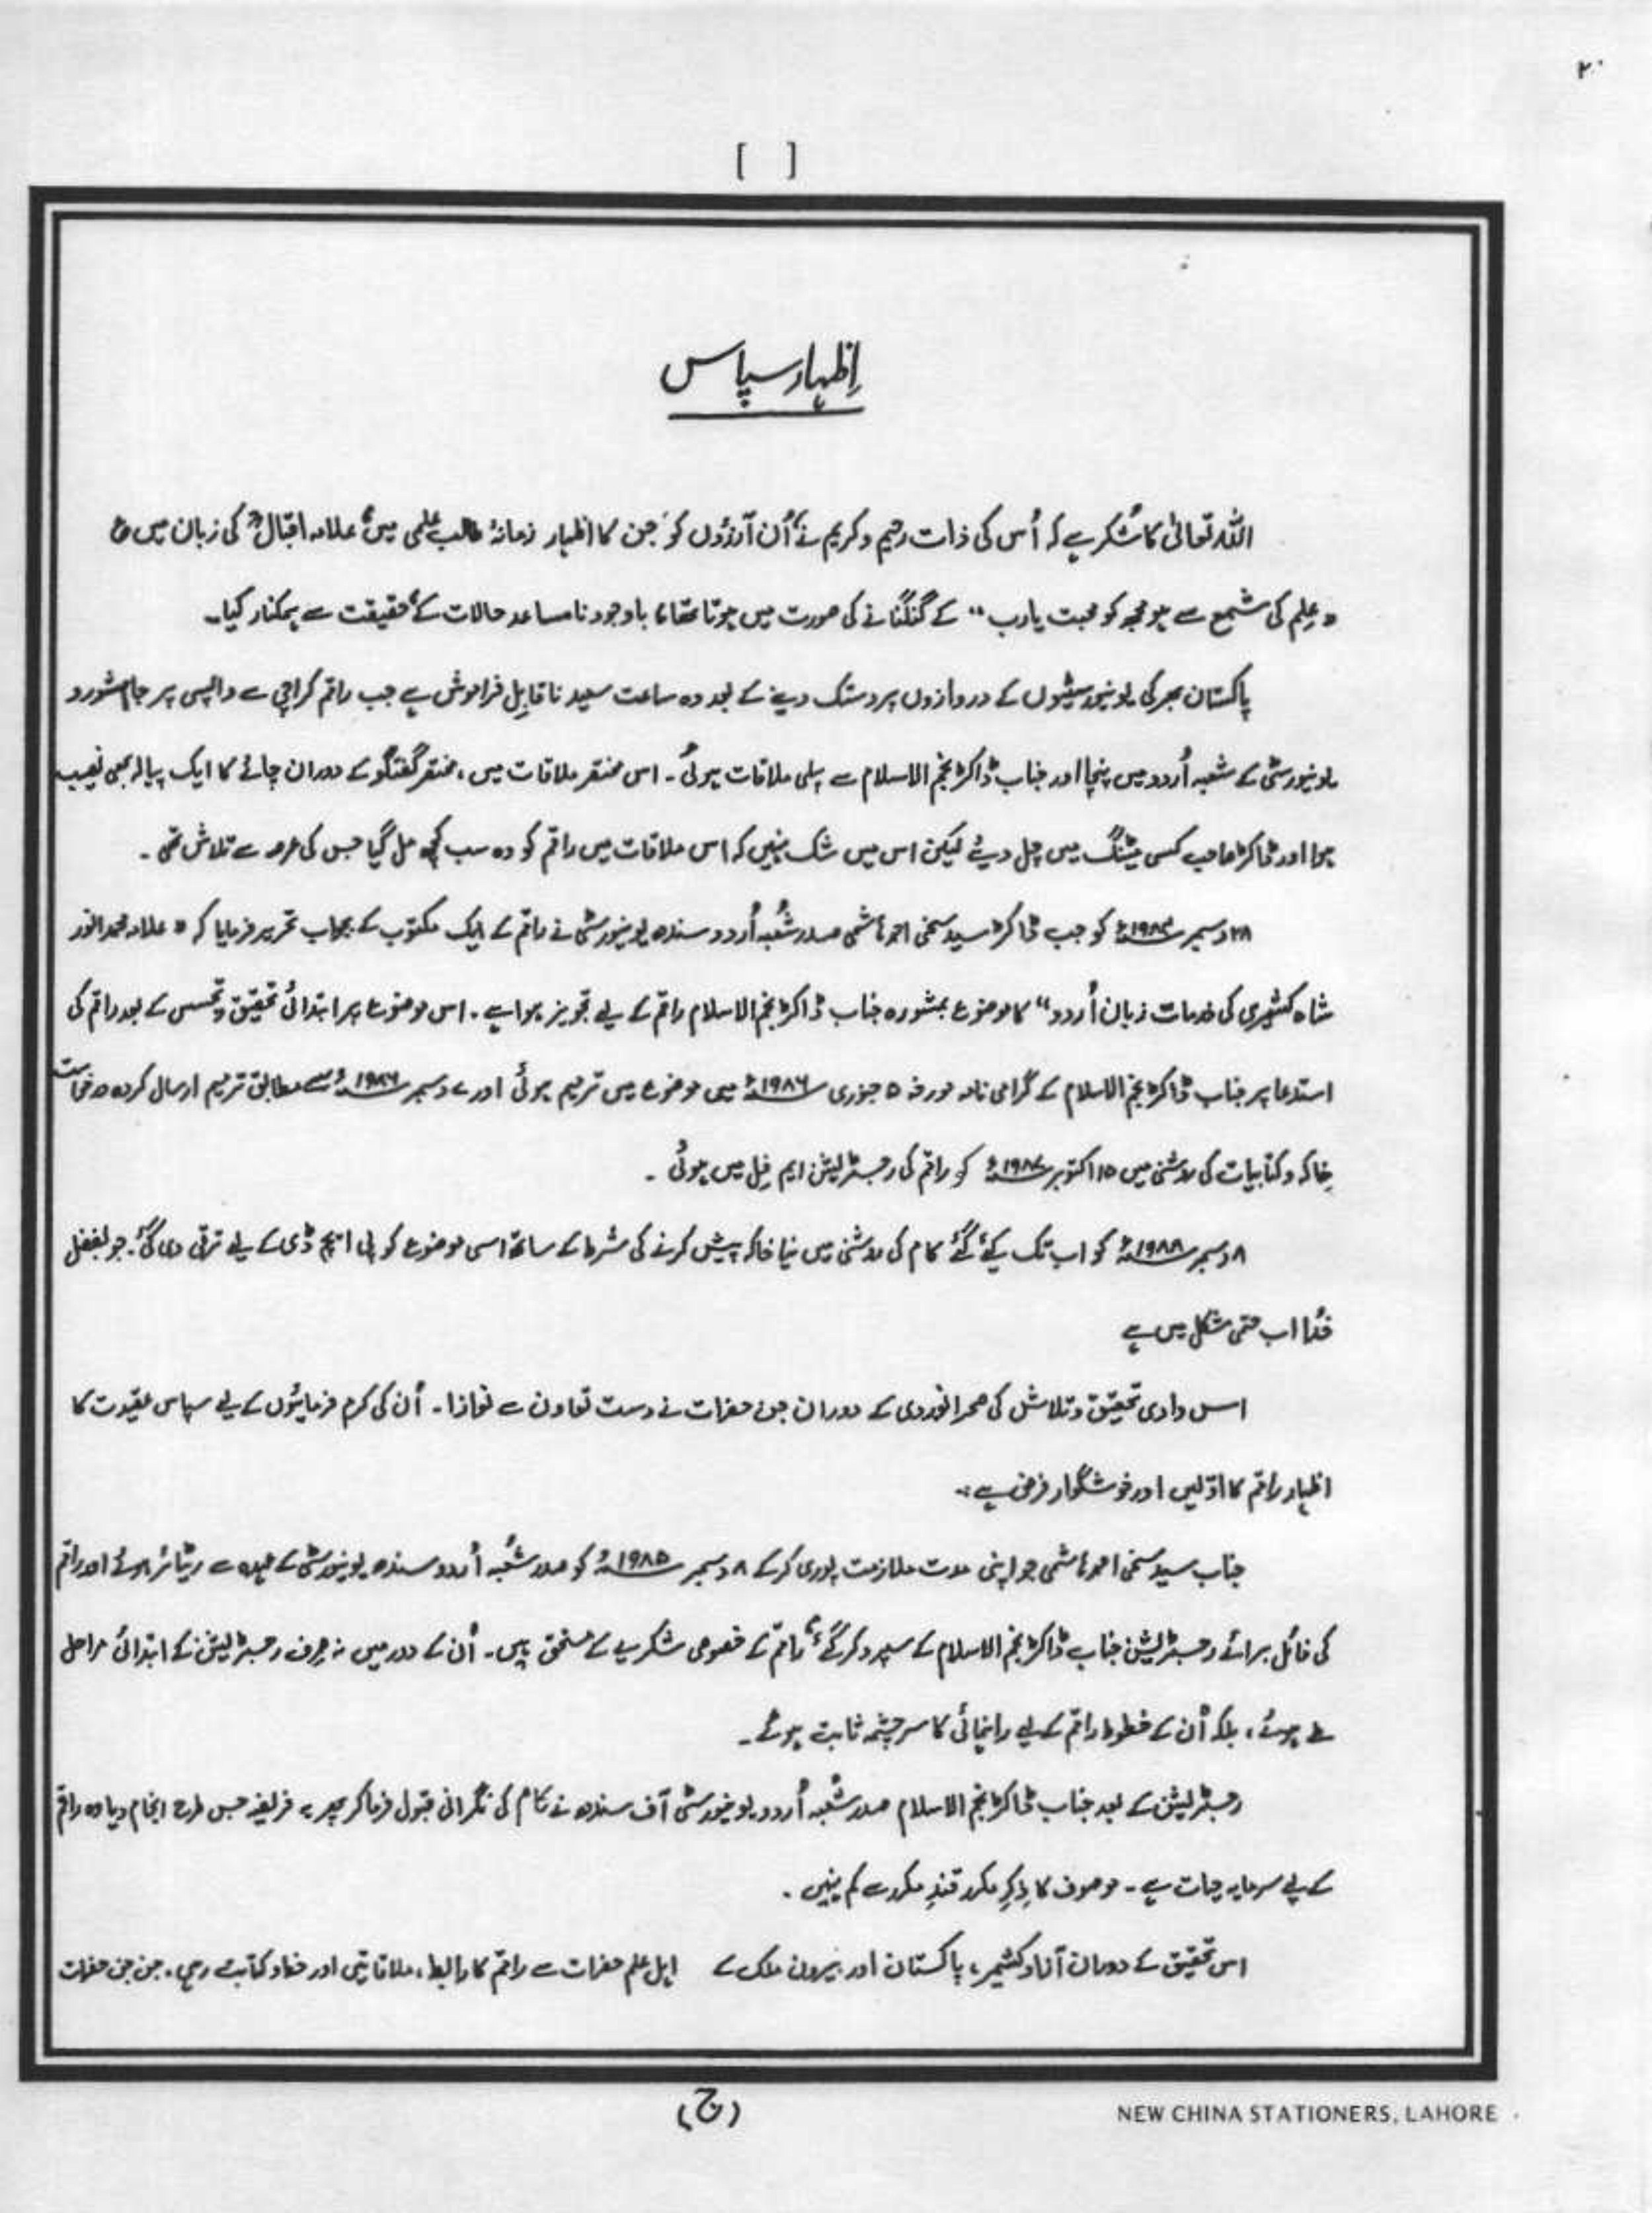 ۲۰
[ ]
اِظہارِ سپاس
اللہ تعالیٰ کا شکر ہے کہ اُس کی ذات رحیم و کریم نے اُن آرزوں کو، جن کا اظہار زمانۂ طالب علمی میں، علامہ اقبالؒ کی زبان میں ع
"علِم کی شمع سے ہو مجھ کو محبت یارب" کے گنگنانے کی صورت میں ہوتا تھا، باوجود نامساعد حالات کے، حقیقت سے ہمکنار کیا۔
پاکستان بھر کی یونیورسیٹیوں کے دروازوں پر دستک دینے کے بعد وہ ساعت سعید ناقابلِ فراموش ہے جب راقم کراچی سے واپسی پر جام شورو
یونیورسٹی کے شعبہ اُردو میں پہنچا اور جناب ڈاکٹر نجم الاسلام سے پہلی ملاقات ہوئی۔ اس مختصر ملاقات میں، مختصر گفتگو کے دوران چائے کا ایک پیالہ بھی نصیب
ہوا اور ڈاکٹر صاحب کسی میٹنگ میں چل دیئے لیکن اس میں شک نہیں کہ اس ملاقات میں راقم کو وہ سب کچھ مل گیا جس کی عرصہ سے تلاش تھی۔
۲۸ دسمبر کو جب ڈاکٹر سید سخی احمد ہاشمی صدر شُعبہ اُردو سندھ یونیورسٹی نے راقم کے ایک مکتوب کے بجواب تحریر فرمایا کہ "علامہ محمد انور
شاہ کشمیری کی خدمات زبان اُردو" کا موضوع بمشورہ جناب ڈاکٹر نجم الاسلام راقم کے لیے تجویز ہوا ہے۔ اس موضوع پر ابتدائی تحقیق و تجسس کے بعد راقم کی
استدعا پر جناب ڈاکٹر نجم الاسلام کے گرامی نامہ مورخہ ۵ جنوری ۱۹۸۶ء میں موضوع میں ترمیم ہوئی اور ۷ دسمبر ۱۹۸۶ء سے مطابق ترمیم ارسال کردہ درخواست
خاکہ و کتابیات کی روشنی میں ۱۵ اکتوبر ۱۹۸۷ء کو راقم کی رجسٹریشن ایم فِل میں ہوئی۔
۸ دسمبر ۱۹۸۸ء کو اب تک کیٔے گئے کام کی روشنی میں نیا خاکہ پیش کرنے کی شرط کے ساتھ اسی موضوع کو پی ایچ ڈی کے لیے ترقی دی گئی۔ جو بفضل
خُدا اب حتمی شکل میں ہے
اس وادی تحقیق و تلاش کی صحرانوردی کے دوران جن حضرات نے دست تعاون سے نوازا۔ اُن کی کرم فرمایئوں کے لیے سپاس عقیدت کا
اظہار راقم کا اوّلیں اور خوشگوار فرض ہے:۔
جناب سید سخی احمد ہاشمی جو اپنی مدت ملازمت پوری کرکے ۸ دسمبر ۱۹۸۵ء کو صدر شُعبہ اُردو سندھ یونیورسٹی کے عہدہ سے ریٹائر ہوئے اور راقم
کی فائل برائے رجسٹریشن جناب ڈاکٹر نجم الاسلام کے سپرد کر گئے، راقم کے خصوصی شکریے کے مستحق ہیں۔ اُن کے دور میں نہ صِرف رجسٹریشن کے ابتدائی مراحل
طے ہوئے، بلکہ اُن کے خطوط راقم کے لیے راہنمائی کا سرچشمہ ثابت ہوئے۔
رجسٹریشن کے بعد جناب ڈاکٹر نجم الاسلام صدر شُعبہ اُردو یونیورسٹی آف سندھ نے کام کی نگرانی قبول فرما کر پھر یہ فریضہ جس طرح انجام دیا وہ راقم
کے لیے سرمایہ حیات ہے۔ موصوف کا ذِکرِ مکرر قندِ مکرر سے کم نہیں۔
اس تحقیق کے دوران آزاد کشمیر، پاکستان اور بیرون ملک کے اہل علم حضرات سے راقم کا رابطہ، ملاقاتیں اور خط و کتابت رہی۔ جن جن حضرات
(ج)
NEW CHINA STATIONERS, LAHORE